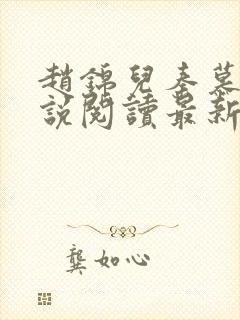 趙錦兒秦慕
說閱讀最新
龔如心